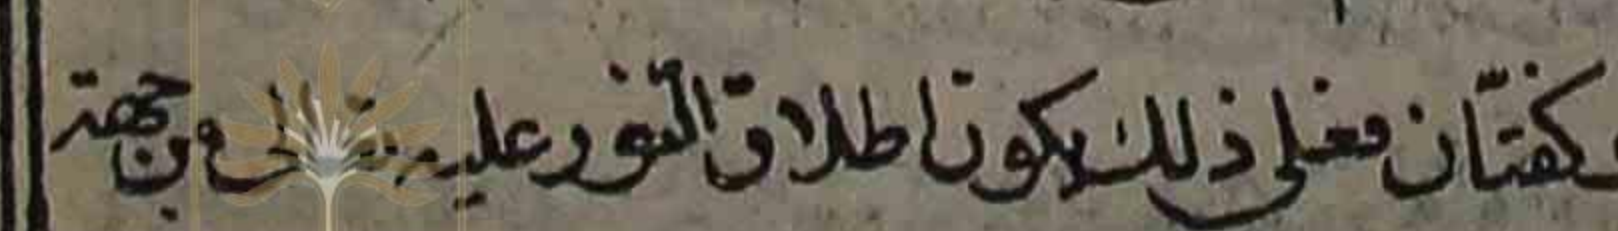 كفتان فعلى ذلك يكون اطلاق النور عليه تعالى من جهة